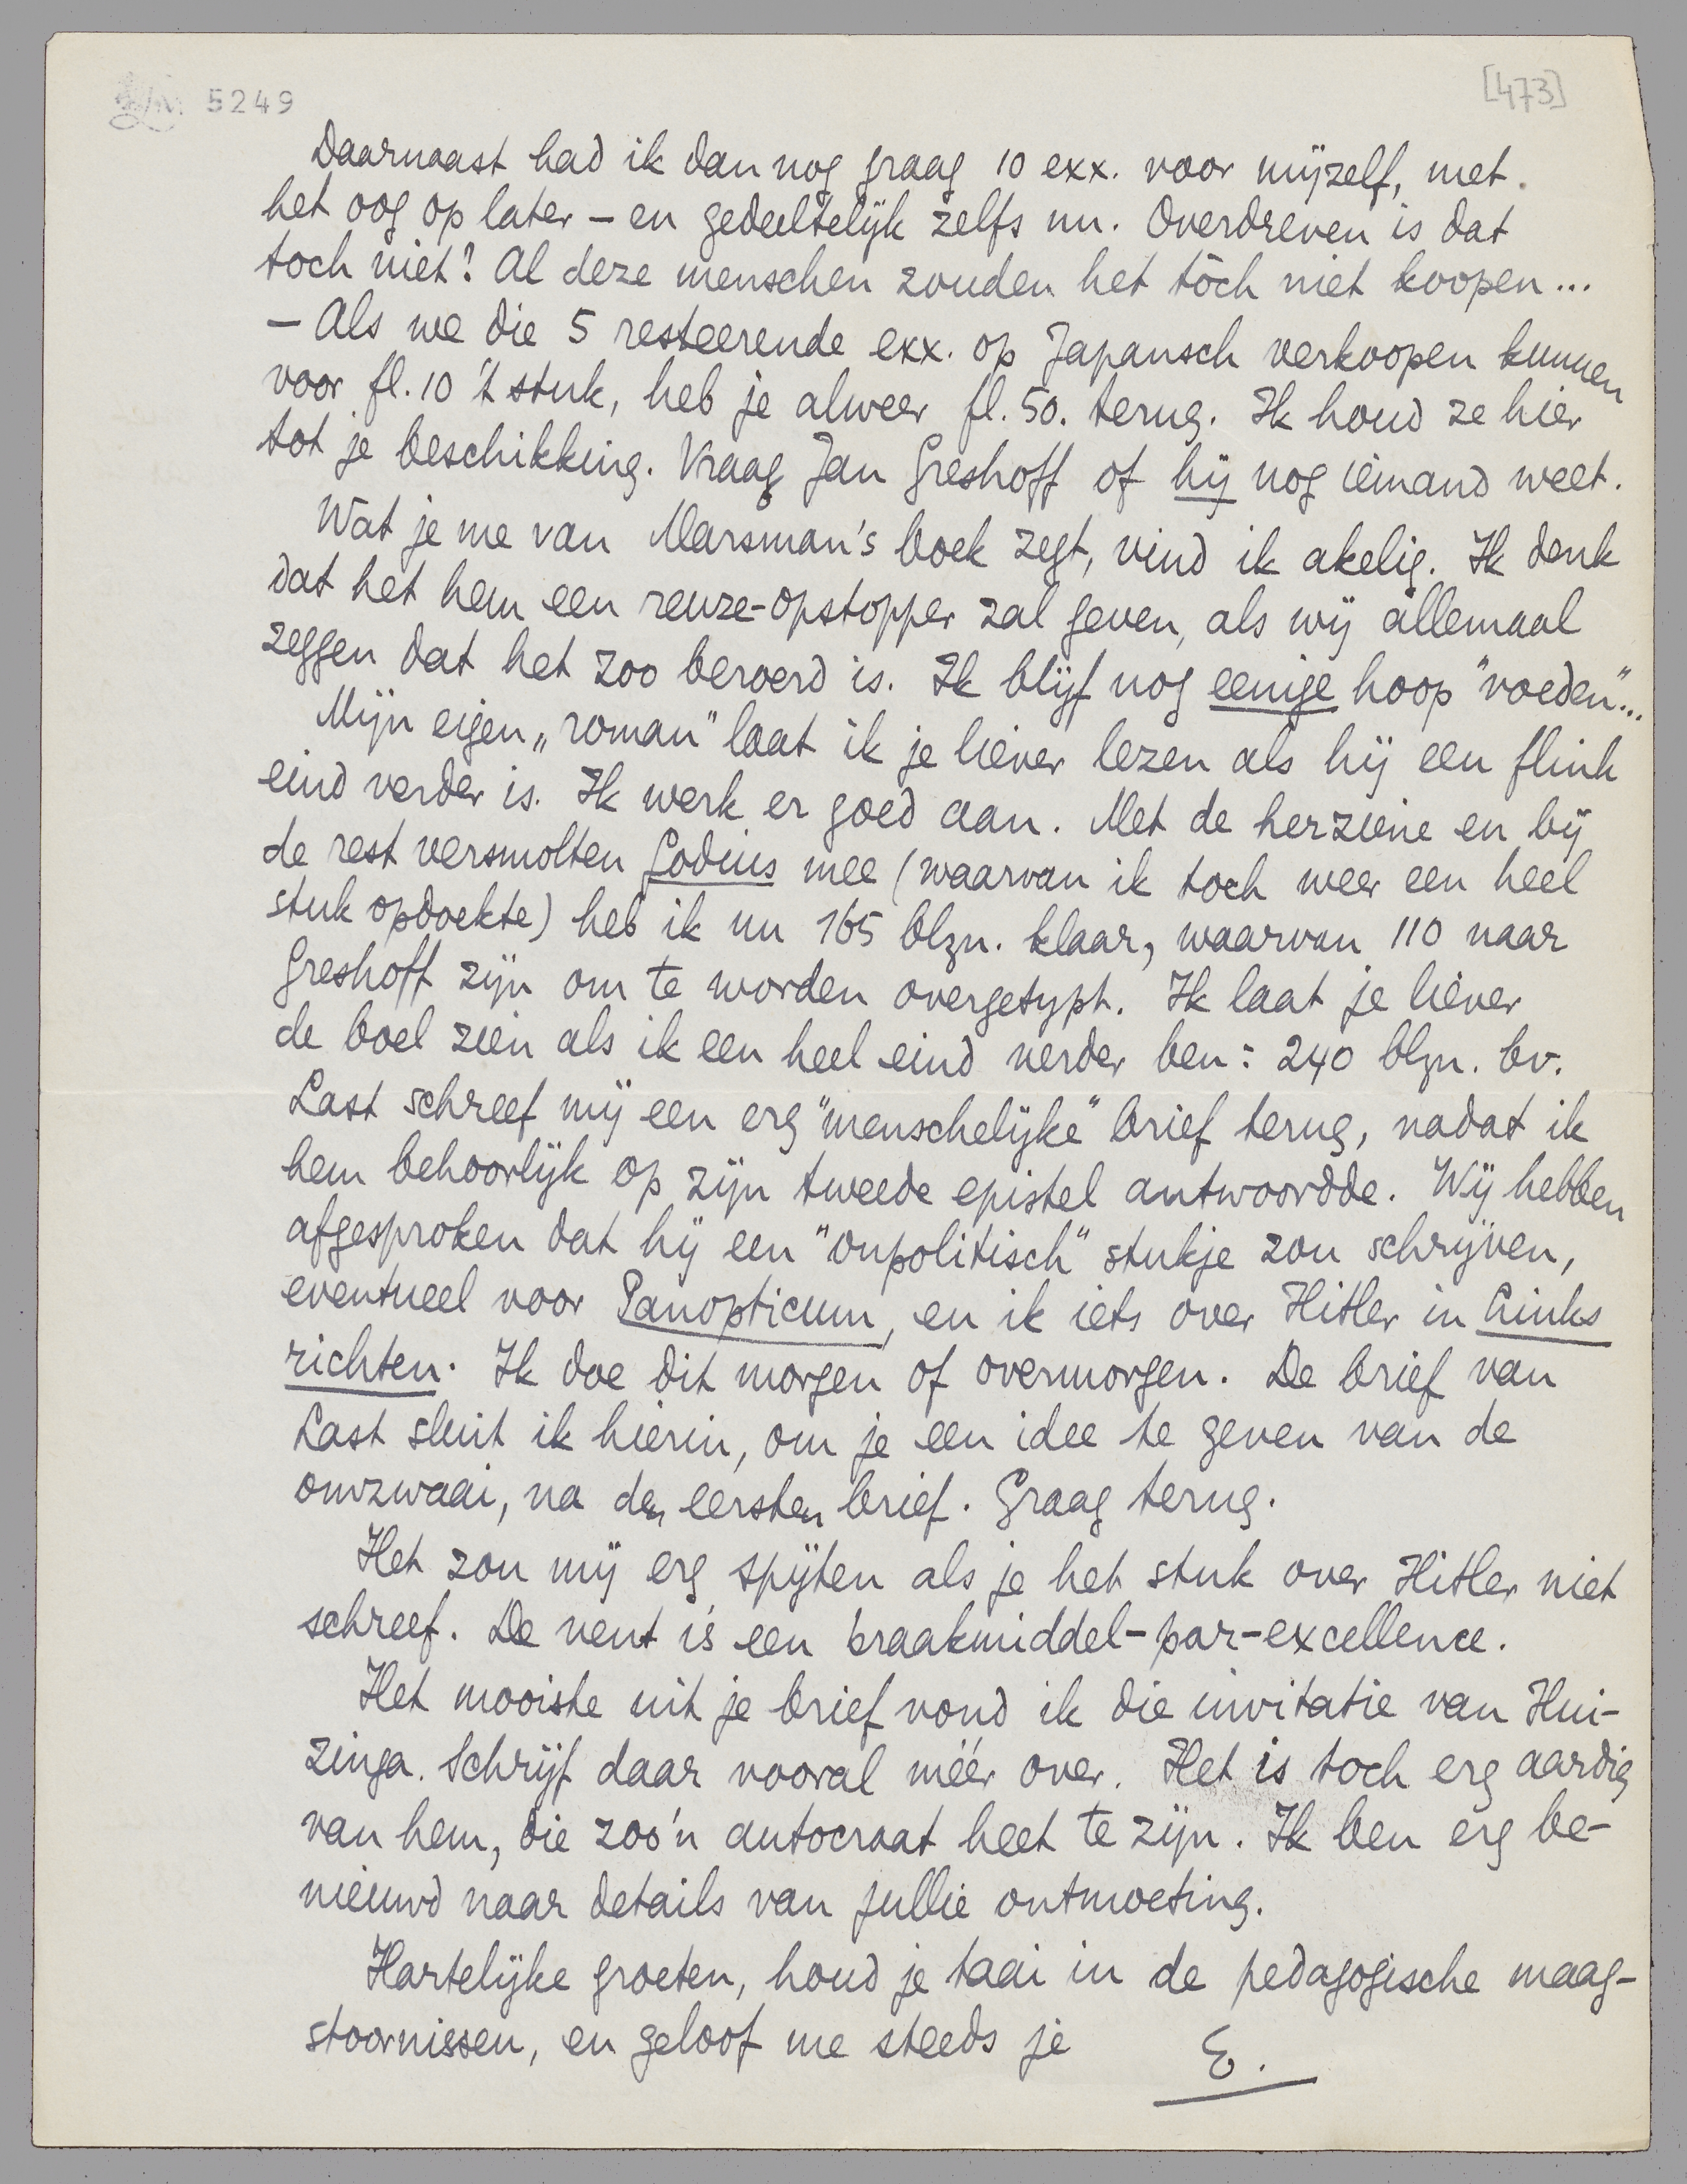 LM 5249
[473]
Daarnaast had ik dan nog graag 10 exx. voor mijzelf, met
het oog op later – en gedeeltelijk zelfs nu. Overdreven is dat
toch niet? Al deze menschen zouden het tòch niet koopen...
– Als we die 5 resteerende exx. op Japansch verkoopen kunnen
voor fl. 10 't stuk, heb je alweer fl. 50. terug. Ik houd ze hier
tot je beschikking. Vraag Jan Greshoff of hij nog iemand weet.
Wat je me van Marsman's boek zegt, vind ik akelig. Ik denk
dat het hem een reuze-opstopper zal geven, als wij allemaal
zeggen dat het zoo beroerd is. Ik blijf nog eenige hoop "voeden"...
Mijn eigen „roman" laat ik je liever lezen als hij een flink
eind verder is. Ik werk er goed aan. Met de herziene en bij
de rest versmolten Godius mee (waarvan ik toch weer een heel
stuk opdoekte) heb ik nu 165 blzn. klaar, waarvan 110 naar
Greshoff zijn om te worden overgetypt. Ik laat je liever
de boel zien als ik een heel eind verder ben: 240 blzn. bv.
Last schreef mij een erg "menschelijke" brief terug, nadat ik
hem behoorlijk op zijn tweede epistel antwoordde. Wij hebben
afgesproken dat hij een "onpolitisch" stukje zou schrijven,
eventueel voor Panopticum, en ik iets over Hitler in Links
richten. Ik doe dit morgen of overmorgen. De brief van
Last sluit ik hierin, om je een idee te geven van de
omzwaai, na den eersten brief. Graag terug.
Het zou mij erg spijten als je het stuk over Hitler niet
schreef. De vent is een braakmiddel-par-excellence.
Het mooiste uit je brief vond ik die invitatie van Hui-
zinga. Schrijf daar vooral méér over. Het is toch erg aardig
van hem, die zoo'n autocraat heet te zijn. Ik ben erg be-
nieuwd naar details van jullie ontmoeting.
Hartelijke groeten, houd je taai in de pedagogische maag-
stoornissen, en geloof me steeds je
E.